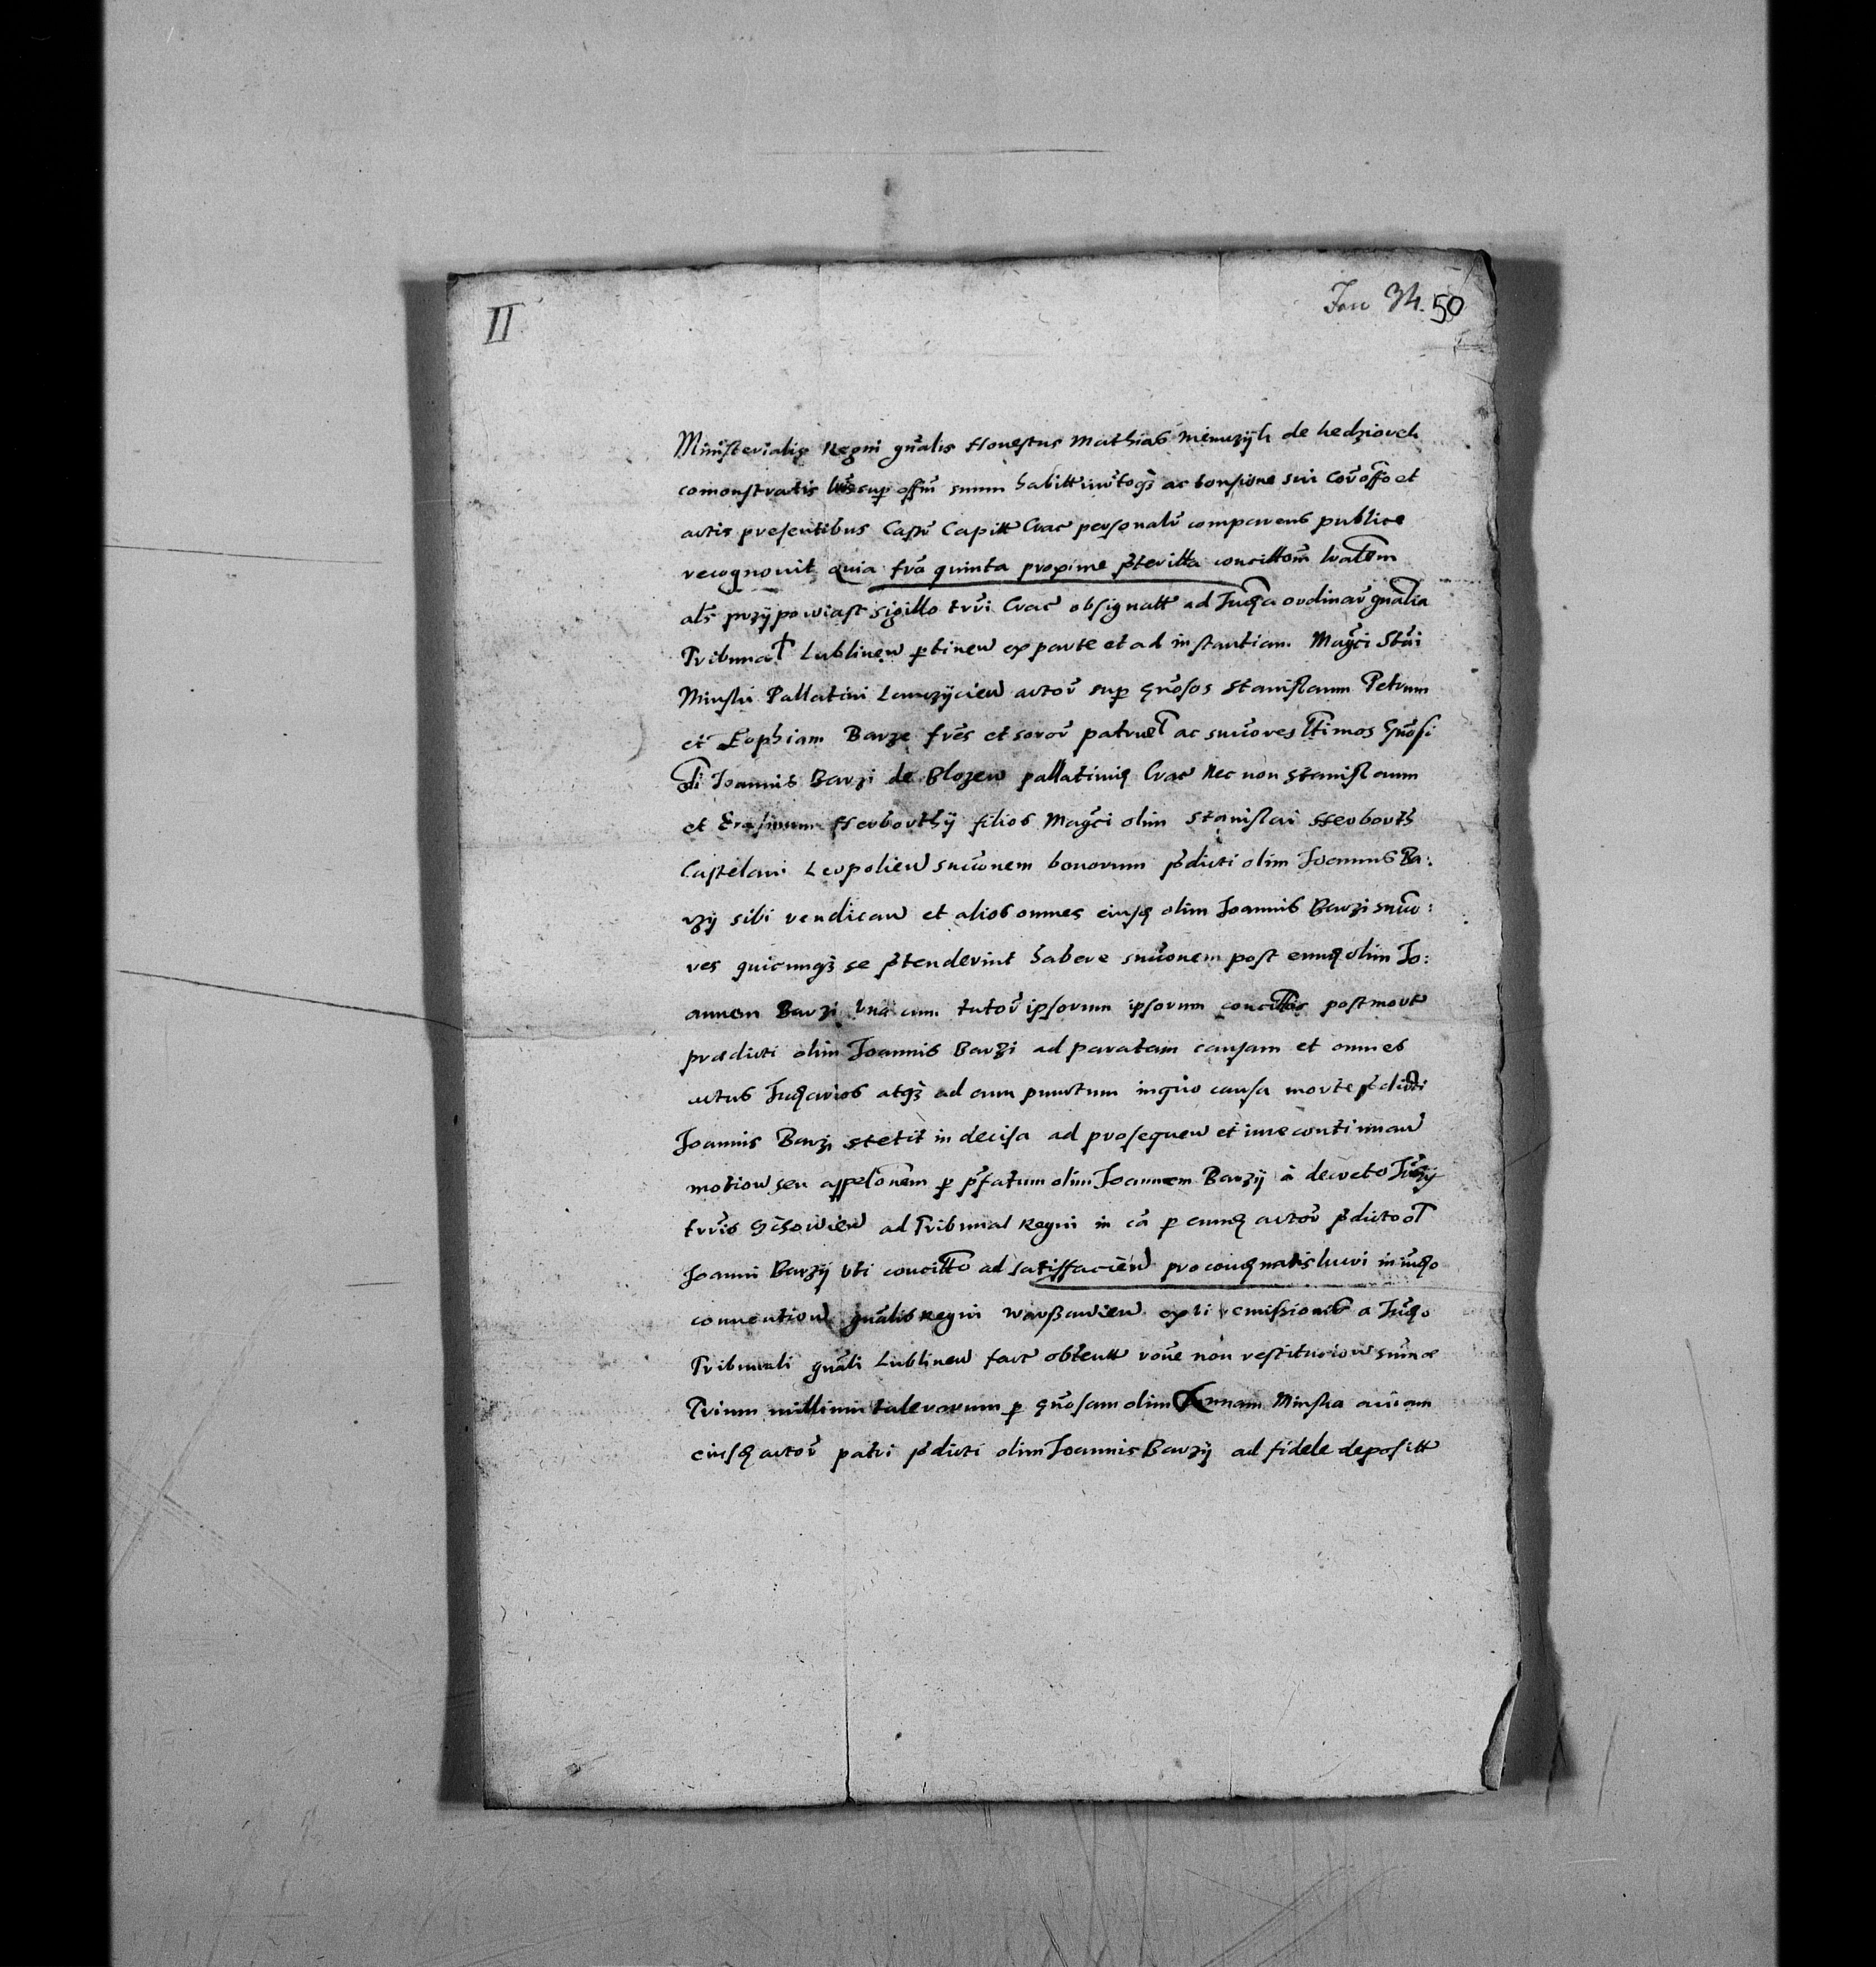 II
50
Ministerialis Regni gnalis Honestus Mathias de
comonstratis sup offm suum ac sui et
actis presentibus Castr Capitt Crac personalr comparens publice
recognouit quia fra quinta proxime pteritta
als przypowiast sigillo trri Crac obsignatt ad Judca ordinar gnalia
Tribunal Lublinen ptinen ex parte et ad instantiam Magci Stai
Minski Pallatini Lanczycien actor sup Gnosos Stanislaum Petrum
et Zophiam Barze fres et soror patruel ac succores ltimos Gnosi
oli Joannis Barzi de Blozew pallatinidis Crac Nec non Stanislaum
et Erasmum Herborthy filios Magci olim Stanislai Herborth
Castelani Leopolien succonem bonorum pdicti olim Joannis Ba:
rzy sibi vendican et alios omnes eiusd olim Joannis Barzi succo:
res quicunqz se ptenderint habere succonem post eund olim Jo:
annem Barzi vna cum tutor ipsorum ipsorum post mort
praedicti olim Joannis Barzi ad paratam causam et omnes
actus Judcarios atqz ad eum punctum in quo causa morte pdicti
Joannis Barzi stetit indecisa ad prosequen et iure continuan
motion seu appelonem p pfatum olim Joannem Barzy à decreto Judcy
trris ad Tribunal Regni in ca p eund actor pdicto ol
Joanni Barzy vti ad satisffacien pro lucri in iudco
conuention gnalis Regni Warssawien ex remissionis a Judco
Tribunali gnali Lublinen fact obtentt non restitucion sumae
Trium millium talerorum p Gnosam olim Annam Minska auiam
eiusd actor patri pdicti olim Joannis Barzy ad fidele depositt